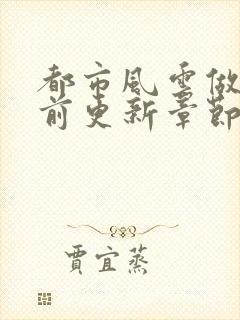 都市風雲做
前更新章節
賈宜蒸